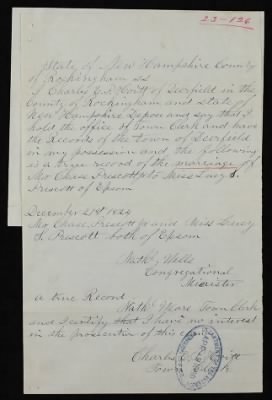 23-126
State of New Hampshire County
of Rockingham SS
I Charles of Deerfield in the
County of Rockingham and State of
New Hampshire Depose and say that I
hold the office of Town Clerk and have
the Records of the town of Deerfield
in my possession and the following
is a true record of the marriage of
Mr Chase Prescott to Miss Lucy S.
Prescott of Epsom
December 21st 1824
Mr Chase Prescott Jr and Miss Lucy
S. Prescott both of Epsom
Nath Wells
Congregational
Minister
A true Record
Town Clerk
and I certify that I have no interest
in the prosecution of this
Charles
Town Clerk